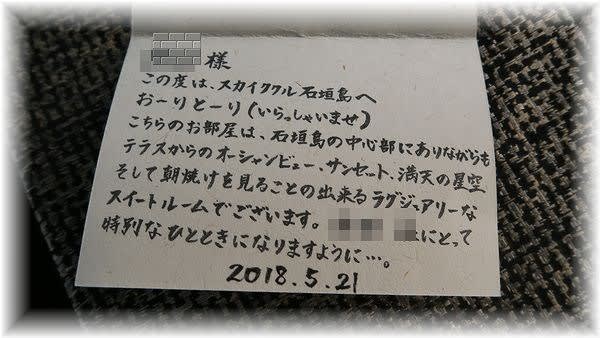 様
この度は、スカイククル石垣島へ
おーりとーり(いらっしゃいませ)
こちらのお部屋は、石垣島の中心部にありながらも
テラスからのオーシャンビュー、サンセット、満天の星空
そして朝焼けを見ることの出来るラグジュアリーな
スイートルームでございます。にとって
特別なひとときになりますように…。
2018.5.21